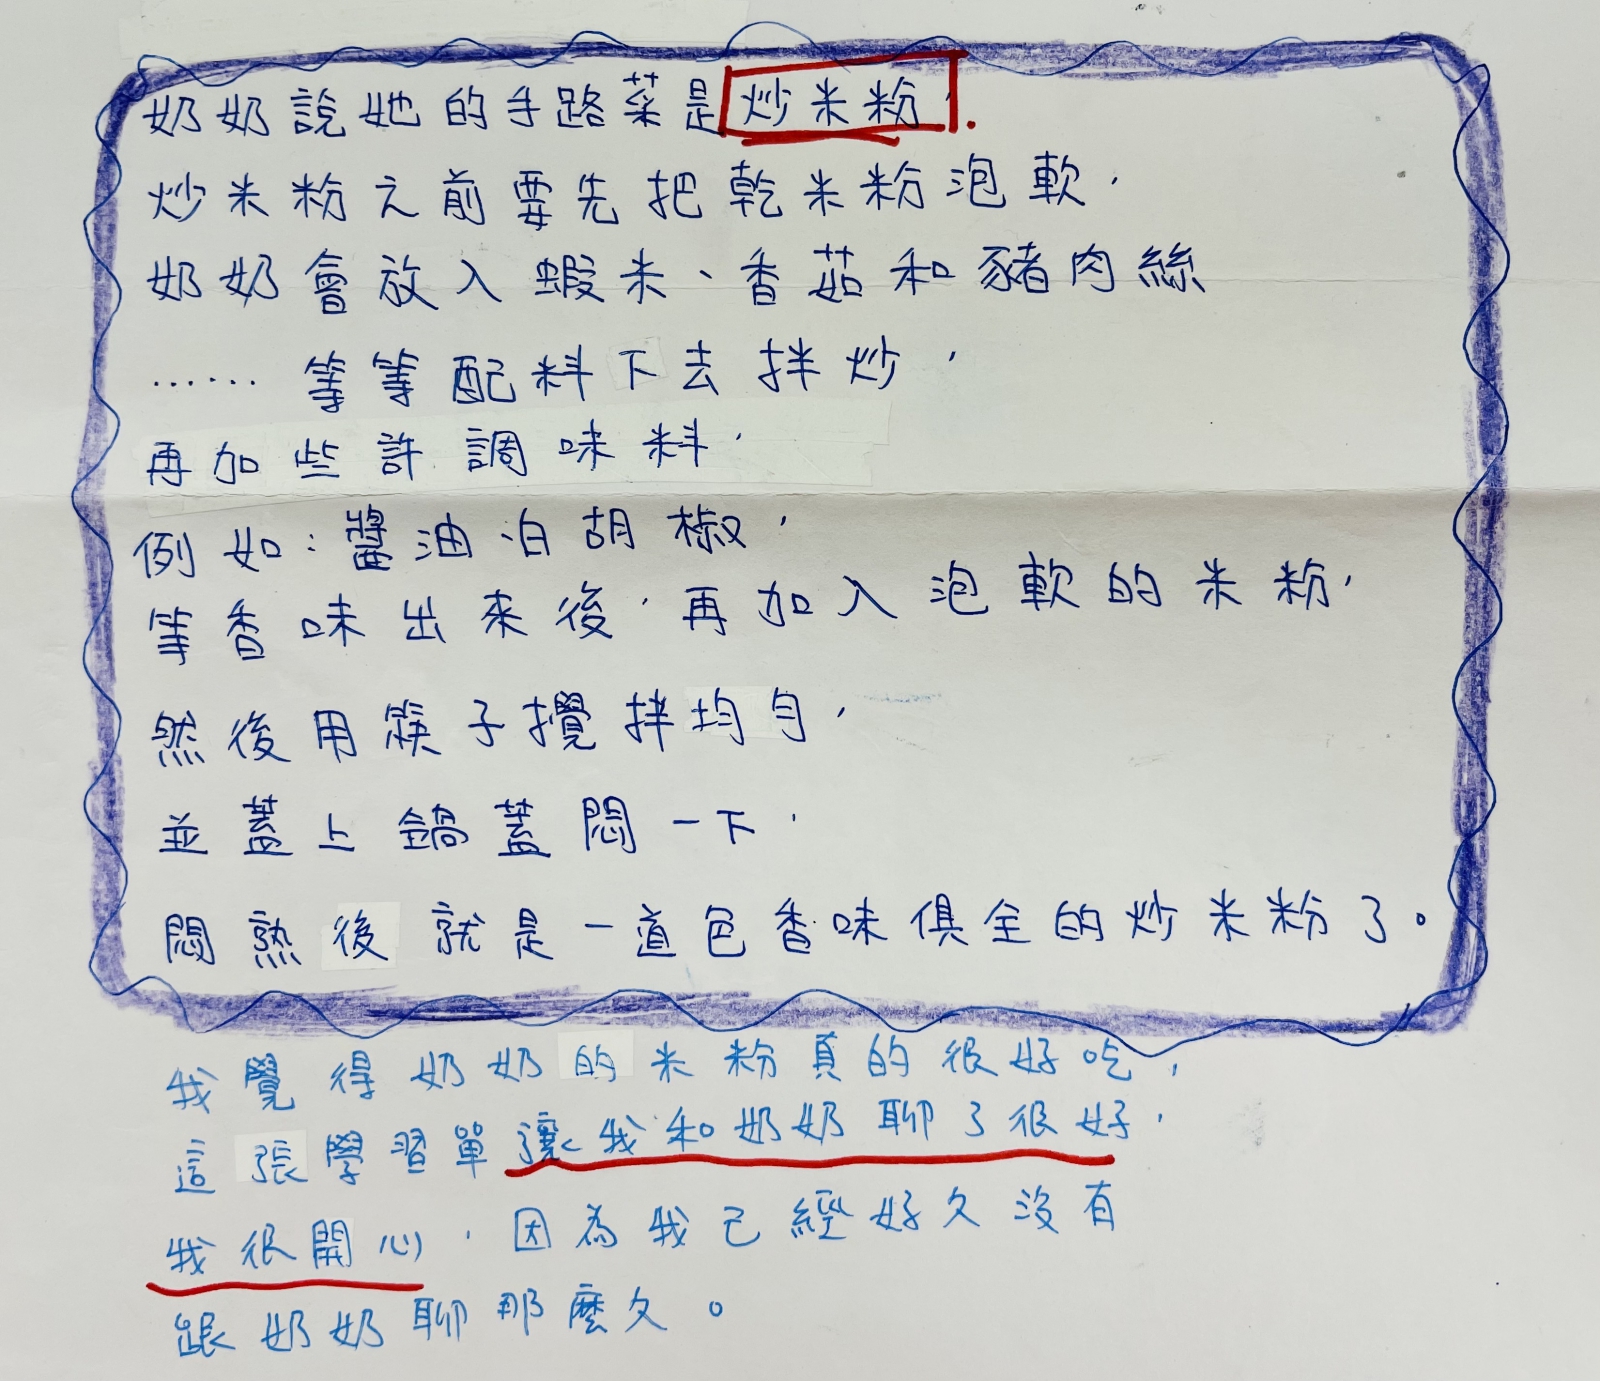 奶奶說她的手路菜是炒米粉，
炒米粉之前要先把乾米粉泡軟，
奶奶會放入蝦米、香菇和豬肉絲
……等等配料下去拌炒，
再加些許調味料，
例如：醬油、白胡椒，
等香味出來後，再加入泡軟的米粉，
然後用筷子攪拌均勻，
並蓋上鍋蓋悶一下，
悶熟後就是一道色香味俱全的炒米粉了。
我覺得奶奶的米粉真的很好吃，
這張學習單讓我和奶奶聊了很好，
我很開心，因為我已經好久沒有
跟奶奶聊那麼久。